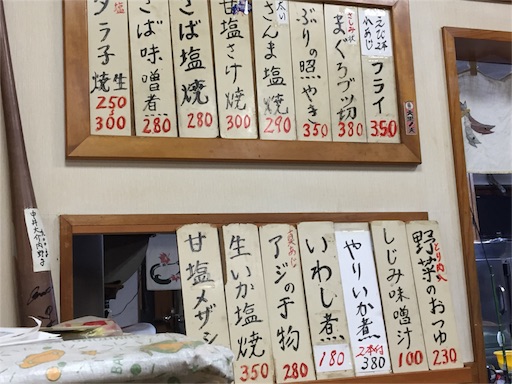 えび2本
小あじ
フライ
350
さしみ状
まぐろブツ切
380
ぶりの照やき
350
太い
さんま塩焼
290
甘塩さけ焼
300
さば塩焼
280
さば味噌煮
280
タラ子焼
塩
生
250
300
とり肉入
野菜のおつゆ
230
しじみ味噌汁
100
やりいか煮
2本付
380
いわし煮
180
真あじ
アジの干物
280
生いか塩焼
350
甘塩メザシ
中井大介